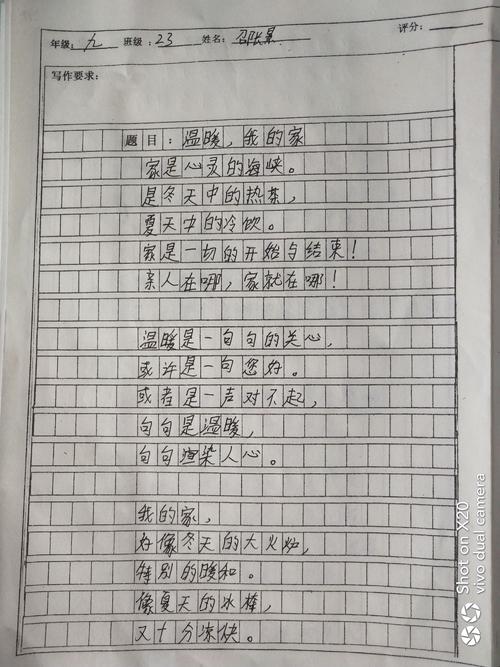 年级: 九 班级: 23 姓名: 评分:
写作要求:
题目: 温暖,我的家
家是心灵的海峡。
是冬天中的热茶,
夏天中的冷饮。
家是一切的开始与结束!
亲人在哪,家就在哪!
温暖是一句句的关心,
或许是一句您好。
或者是一声对不起,
句句是温暖,
句句渲染人心。
我的家,
好像冬天的大火炉,
特别的暖和。
像夏天的冰棒,
又十分凉快。
Shot on X20
vivo dual camera